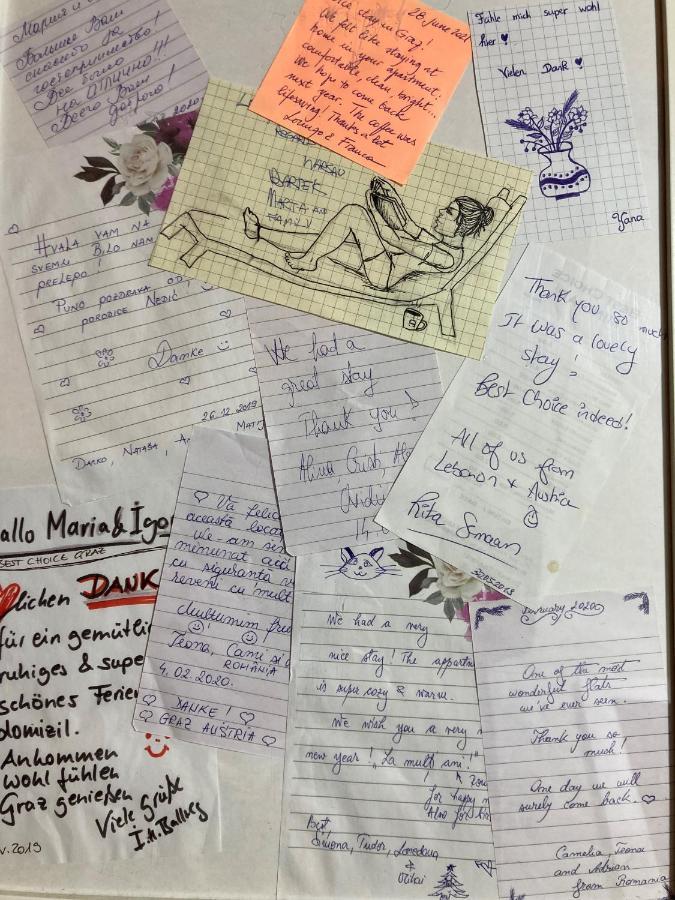 Большое Вам
спасибо за
гостеприимство!
Все было
на ОТЛИЧНО!!!
Всего Вам
доброго!
2020
28 June 2021
in Graz!
We felt like staying at
home in your apartment:
comfortable, clean, bright...
We hope to come back
next year. The coffee was
lifesaving! Thanks a lot
&
Fühle mich super wohl
hier ♥
Vielen Dank ♥
Yana
WARSAW
BARTEK
MARTA AND
FAMILY
HVALA VAM NA
SVEMU BILO NAM
PRELEPO!
PUNO POZDRAVA OD
PORODICE NEDIĆ!
Danke ☺
26.12.2019
DARKO, NATAŠA, A
We had a
great stay
Thank you!
Alina
14
Thank you so much
It was a lovely
stay!
Best Choice indeed!
All of us from
Lebanon & Austria
☺
Rita Semaan
allo Maria & İgo
BEST CHOICE GRAZ
lichen DANK
für ein gemütli
ruhiges & supe
schönes Ferien
domizil.
Ankommen
wohl fühlen
Graz genießen
Viele Grüße
v. 2019
♡ Vă felic
această loca
We-am sim
minunat aici
cu siguranta v
reveni cu mult
Multumim fru
Teona, Cami si
ROMÂNIA
4.02.2020.
♡ DANKE! ♡
♡ GRAZ AUSTRIA ♡
We had a very
nice stay! The apartm
is super cozy & warm.
We wish you a very
new year! "La multi ani!"
for happy n
Also for
Best,
Simona, Tudor, Loredana
& Mihai
January 2020
One of the most
wonderful flats
we've ever seen.
Thank you so
much!
One day we will
surely come back. ♡
Camelia, Teona
and Adrian
from Romania